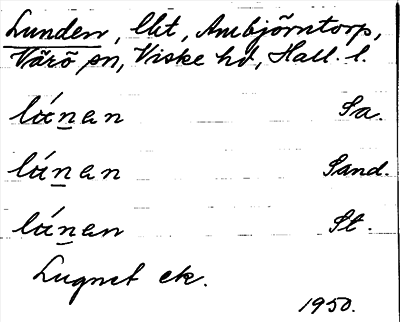 Lunden, lht, Ambjörntorp,
Värö sn, Viske hd, Hall. l.
lánan Sa.
lánan Sand.
lánan St.
Lugnet ek.
1950.